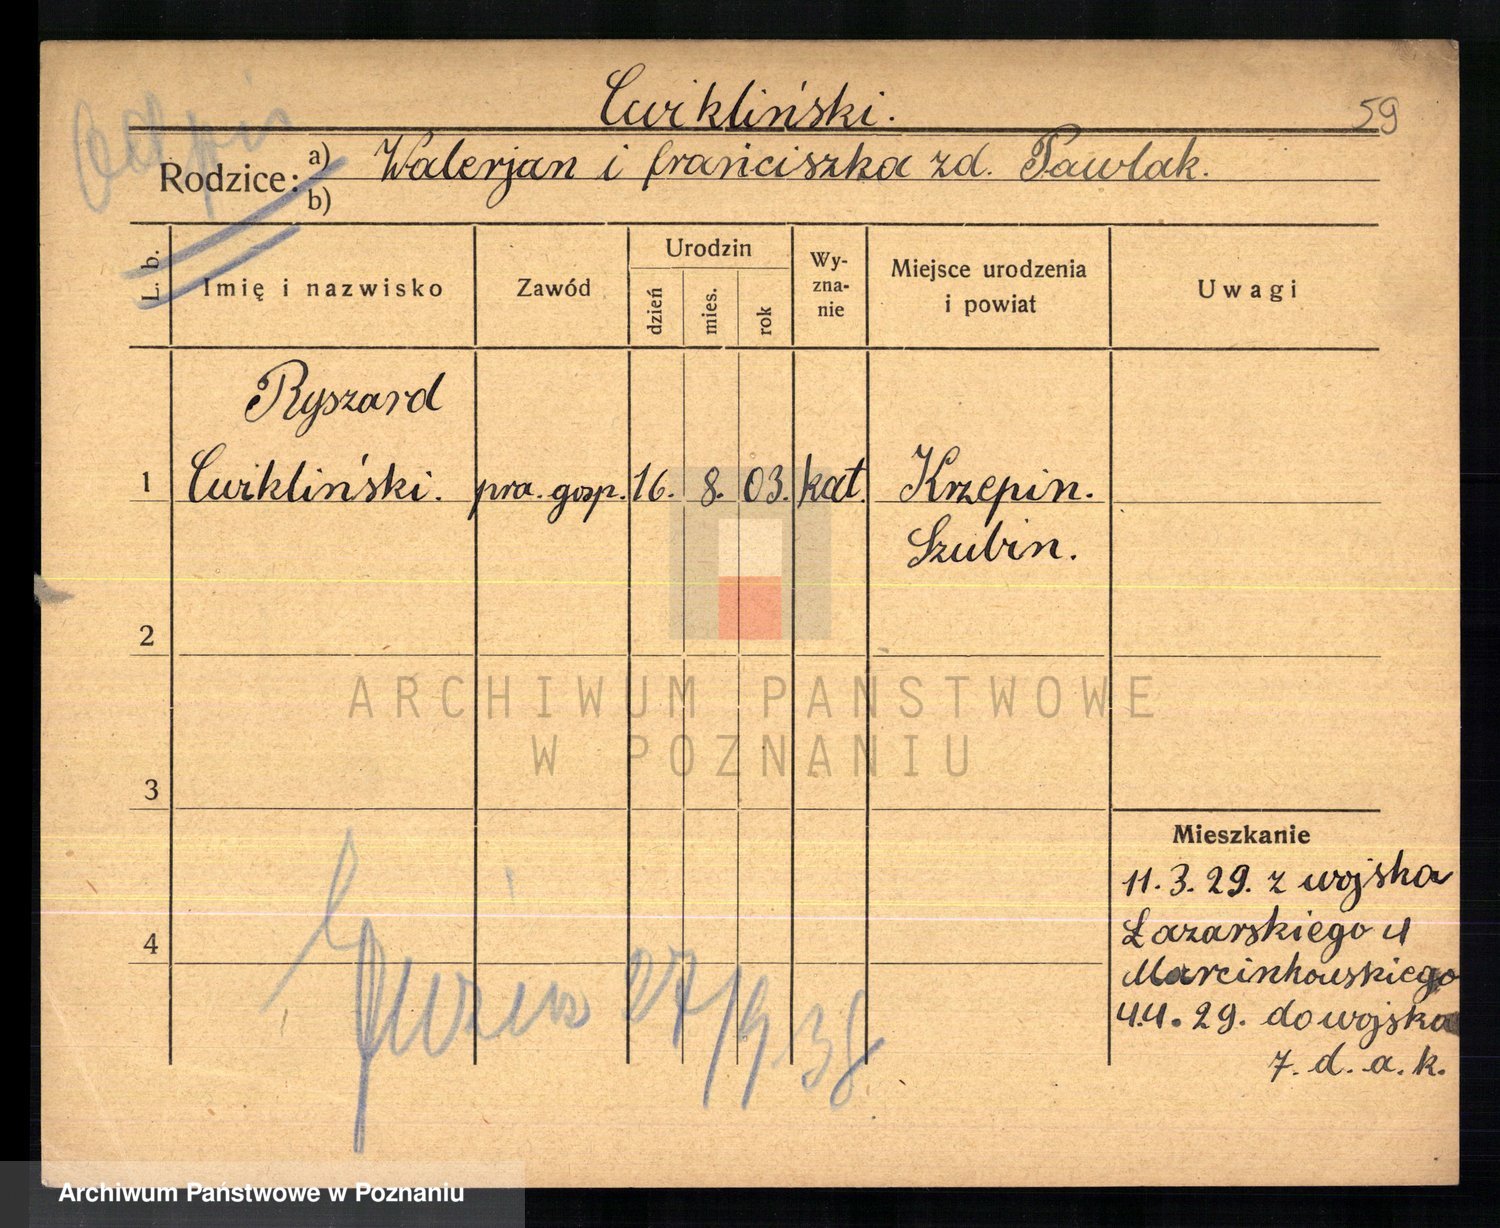 Odpis
Cwikliński.
59
Rodzice:
a) Walerjan i Franciszka zd. Pawlak.
b)
L. b.
Imię i nazwisko
Zawód
Urodzin
dzień
mies.
rok
Wy-
zna-
nie
Miejsce urodzenia
i powiat
Uwagi
Ryszard
1 Cwikliński. pra. gosp. 16. 8. 03. kat. Krzepin.
Szubin.
2
ARCHIWUM PANSTWOWE
W POZNANIU
3
Mieszkanie
11. 3. 29. z wojska
Łazarskiego 4
Marcinkowskiego
4.4. 29. do wojska
7. d. a. k.
4
27/9 38
Archiwum Państwowe w Poznaniu